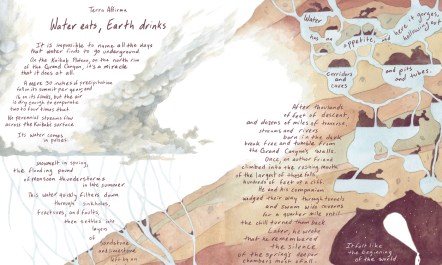 Terra Affirma
Water eats, Earth drinks
It is impossible to name all the ways
that water finds to go underground.
On the Kaibab Plateau, on the north rim
of the Grand Canyon, it's a miracle
that it does at all.
A mere 30 inches of precipitation
falls on its summit per year, and
on its flanks, but the air
is dry enough to evaporate
two to four times that.
No perennial streams flow
across the Kaibab's surface.
Its water comes
in pulses:
snowmelt in spring,
the flooding pound
of monsoon thunderstorms
in late summer.
This water quickly filters down
through sinkholes,
fractures, and faults,
then settles into
layers
of
sandstone
and limestone
Water
has an
appetite, and here it gorges,
hollowing out
Corridors
and
caves
and pits
and tubes.
After thousands
of feet of descent,
and dozens of miles of traverse,
streams and rivers
born in the dark
break free and tumble from
the Grand Canyon's walls.
Once, an author friend
climbed into the rushing mouth
of the largest of these falls,
hundreds of feet up a cliff.
He and his companion
wedged their way through tunnels
and swam wide caverns
for a quarter mile until
the chill turned them back.
Later, he wrote
that he remembered
the silence
of the springs' deeper
chambers most of all.
It felt like
the beginning
of the world